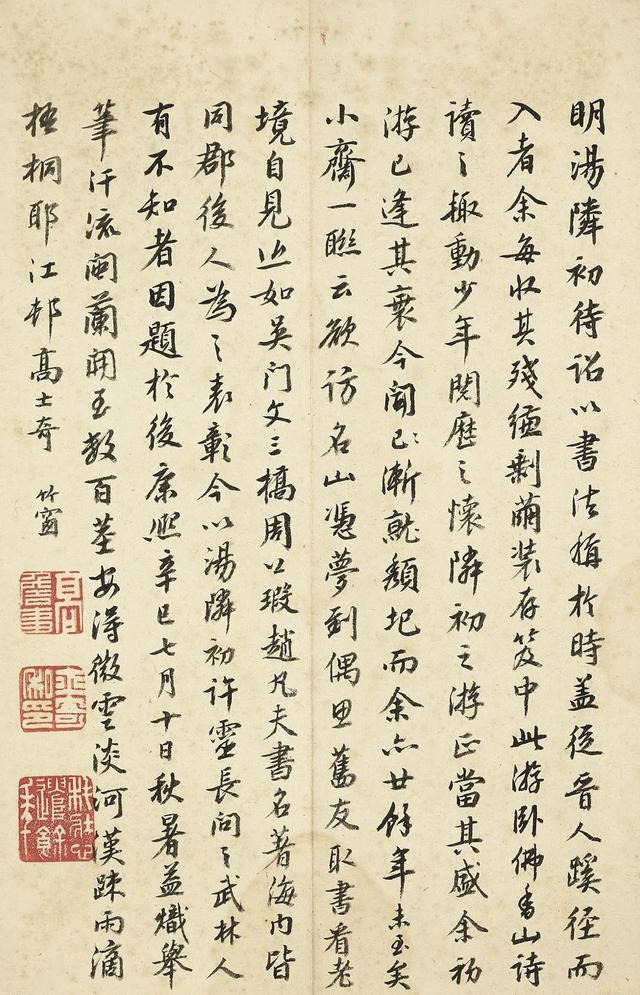 明湯隣初待詔以書法稱於時蓋從晋人蹊徑而
入者余每收其殘縑剩繭装存笈中此游卧佛香山詩
讀之輙動少年閱歷之懷隣初之游正當其盛余初
游已逢其衰今聞已漸就頹圮而余亦廿餘年未至矣
小齋一聯云欲訪名山憑夢到偶思舊友取書看老
境自見近如吳门文三橋周公瑕趙凡夫書名著海内皆
同郡後人為之表彰今以湯隣初許靈長問之武林人
有不知者因題於後康熙辛巳七月十日秋暑益熾舉
筆汗流閩蘭開至數百莖安得微雲淡河漢踈雨滴
梧桐耶江邨高士奇
竹窗